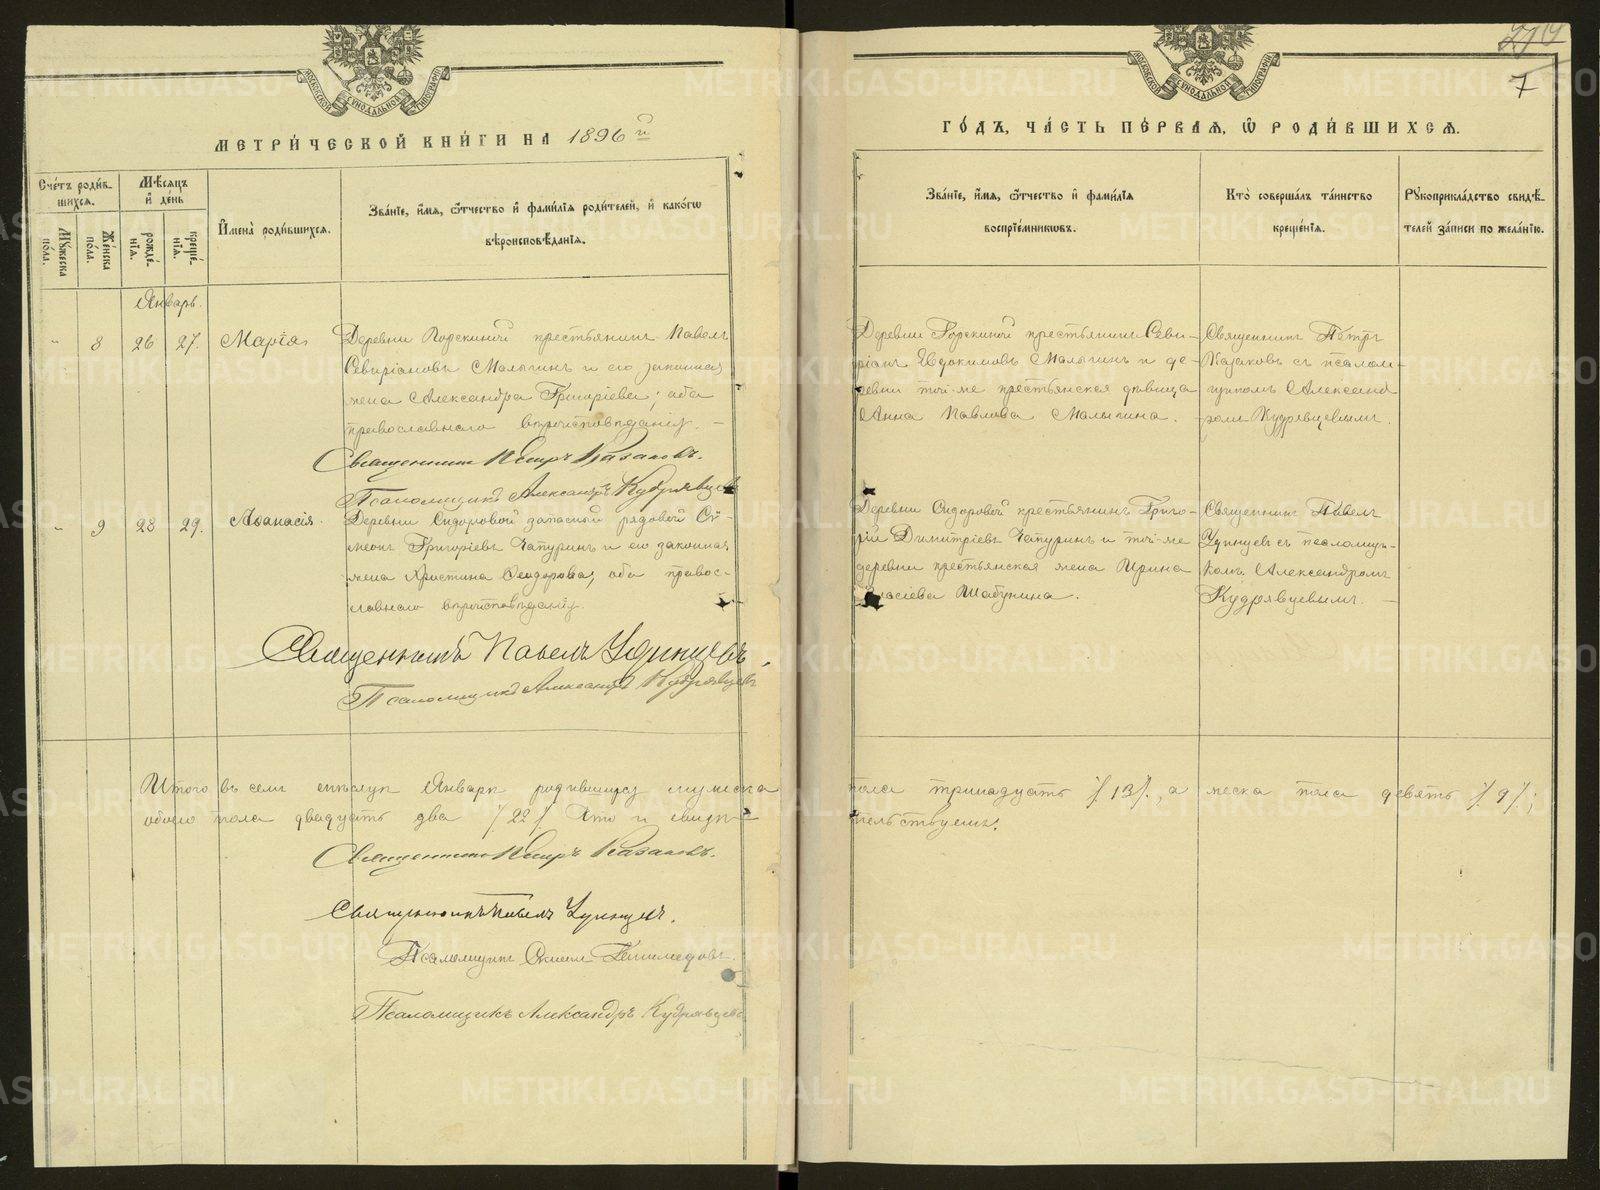 МОСКОВСКОЙ СѴНОДАЛЬНОЙ ТИПОГРАФІИ
МЕТРИ́ЧЕСКОЙ КНИ́ГИ НА 1896 й
Сче́тъ роди́в-
шихся.
Мѣсяцъ
и҆ де́нь
Му́жеска
по́ла.
Же́нска
по́ла.
рожде́-
нїѧ.
креще́-
нїѧ.
И҆мена̀ роди́вшихся.
Зва́нїе, и҆́мя, ѻ҆́тчество и҆ фами́лїя роди́телей, и҆ како́гѡ
вѣроисповѣ́данїя.
Январь.
" 8 26 27. Марія
Деревни Горскиной крестьянинъ Павелъ
Севиріановъ Малыгинъ и его законная
жена Александра Григоріева; оба
православнаго вѣроисповѣданія. —
Священникъ Петръ Казаковъ.
Псаломщикъ Александръ Кудрявцевъ
" 9 28 29. Аѳанасія.
Деревни Сидоровой запасный рядовой Си-
меонъ Григоріевъ Чапуринъ и его законная
жена Христина Ѳеодорова, оба правос-
лавнаго вѣроисповѣданія.
Священникъ Павелъ Удинцевъ.
Псаломщикъ Александръ Кудрявцевъ
Итого въ семъ мѣсяцѣ Январѣ родившихся мужеска
обоего пола двадцать два /. 22 /. Что и свидѣ-
Священникъ Петръ Казаковъ.
Священникъ Павелъ Удинцевъ.
Псаломщикъ
Псаломщикъ Александръ Кудрявцевъ
7
МОСКОВСКОЙ СѴНОДАЛЬНОЙ ТИПОГРАФІИ
ГО́ДЪ, ЧА́СТЬ ПЕ́РВАЯ, Ѡ҆ РОДИ́ВШИХСЯ.
Зва́нїе, и҆́мя, ѻ҆́тчество и҆ фами́лїя
воспрїе́мникѡвъ.
Кто̀ соверша́лъ та́инство
креще́нїя.
Рꙋкоприкла́дство свидѣ́-
телей за́писи по жела́нїю.
Деревни Горскиной крестьянинъ Севи-
ріанъ Евдокимовъ Малыгинъ и де-
ревни той-же крестьянская дѣвица
Анна Павлова Малыгина.
Священникъ Петръ
Казаковъ съ псалом-
щикомъ Александ
ромъ Кудрявцевымъ.
Деревни Сидоровой крестьянинъ Григо-
рій Димитріевъ Чапуринъ и той-же
деревни крестьянская жена Ирина
Власіева Шабунина.
Священникъ Павелъ
Удинцевъ съ псаломщи-
комъ Александромъ
Кудрявцевымъ. —
пола тринадцать /. 13 /., а женска пола девять /. 9 /.;
тельствуемъ.
METRIKI.GASO-URAL.RU